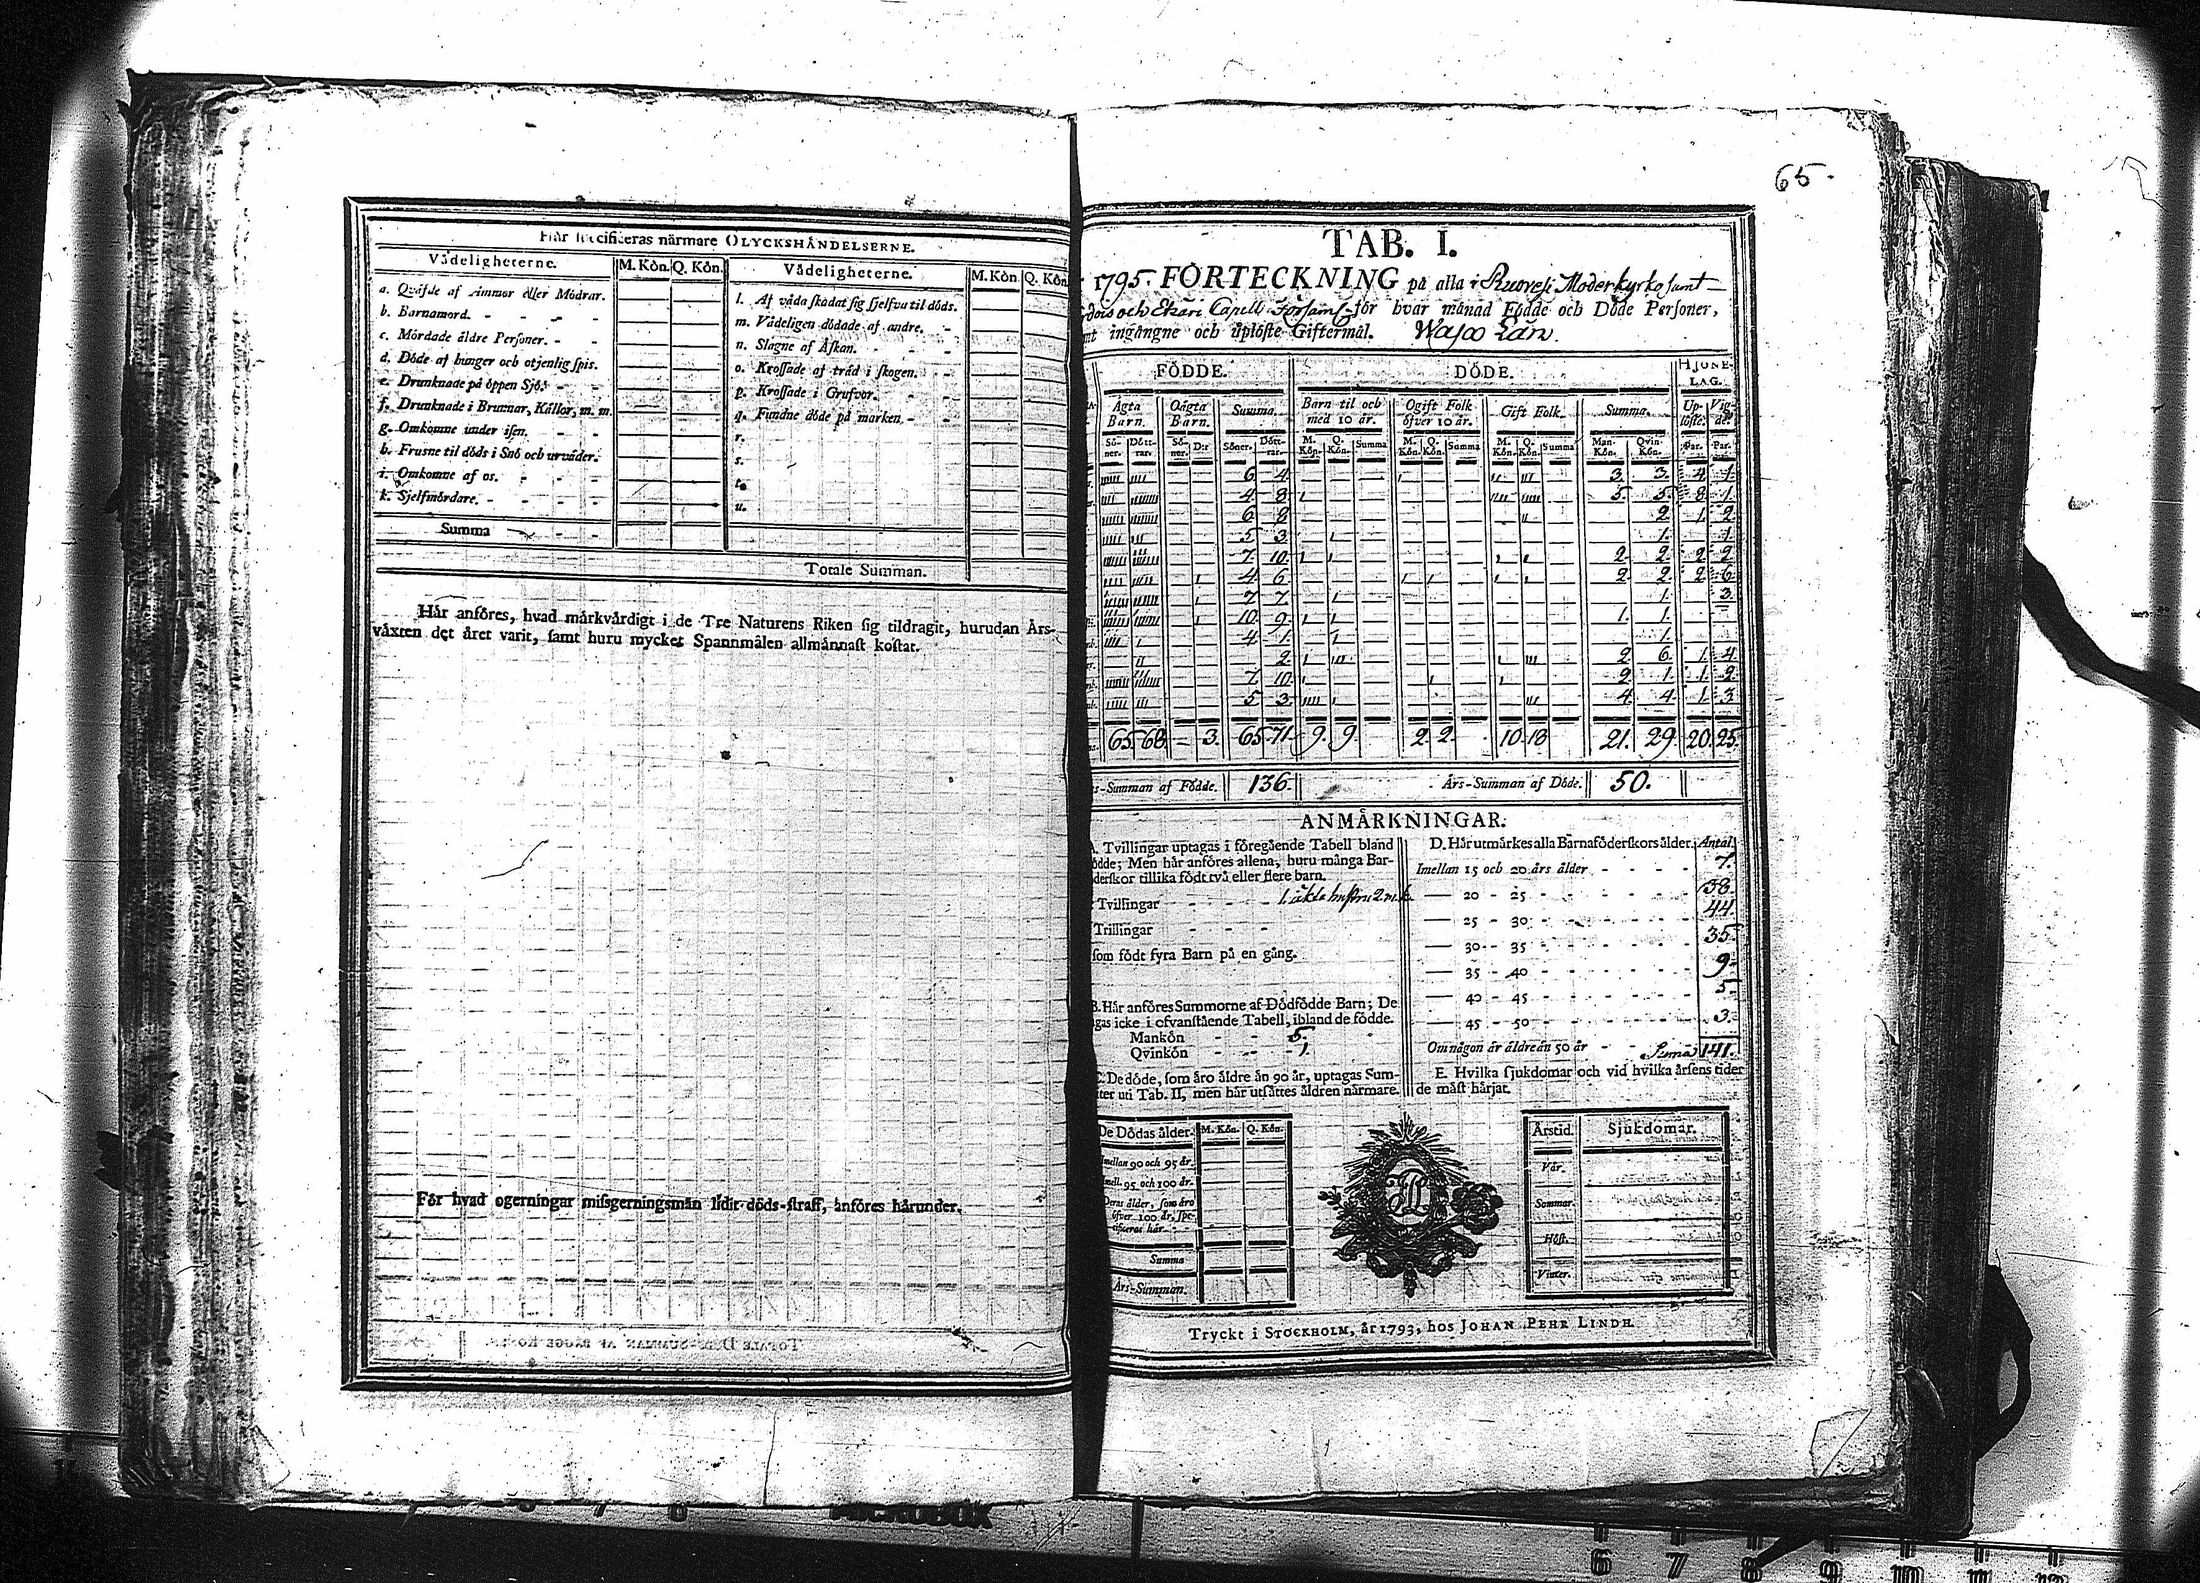 Här specificeras närmare OLYCKSHÄNDELSERNE.
Vådeligheterne. M. Kön. Q. Kön. Vådeligheterne. M. Kön. Q. Kön.
a. Qväfde af Ammor eller Mödrar.
b. Barnamord.
c. Mördade äldre Personer.
d. Döde af hunger och otjenlig spis.
e. Drunknade på öppen Sjö.
f. Drunknade i Brunnar, Källor, m. m.
g. Omkomne under isen.
h. Frusne til döds i Snö och urväder.
i. Omkomne af os.
k. Sjelfmördare.
Summa
l. Af våda skadat sig sjelfva til döds.
m. Vådeligen dödade af andre.
n. Slagne af Åskan.
o. Krossade af träd i skogen.
p. Krossade i Grufvor.
q. Fundne döde på marken.
r.
s.
t.
u.
Totale Summan.
Här anföres, hvad märkvärdigt i de Tre Naturens Riken sig tildragit, hurudan Års-
växten det året varit, samt huru mycket Spannmålen allmännast kostat.
För hvad ogerningar missgerningsmän lidit döds-straff, anföres härunder.
65.
TAB. I.
1795. FÖRTECKNING på alla i Ruovesi Moderkyrko samt
och Etseri Capell Församl. för hvar månad Födde och Döde Personer,
ingångne och uplöste Giftermål. Wasa Län.
FÖDDE. DÖDE. HJONE-
LAG.
Ägta Barn. Oägta Barn. Summa. Barn til och med 10 år. Ogift Folk öfver 10 år. Gift Folk. Summa. Up-löste. Vig-de.
Sö-ner. Dött-rar. Sö-ner. D:r Söner. Dött-rar. M. Kön. Q. Kön. Summa M. Kön. Q. Kön. Summa M. Kön. Q. Kön. Summa Man-Kön. Qvin-Kön. Par. Par.
6 4 3. 3. 4 1.
4 8 5. 5. 8 1.
6 8 2. 1. 2
5 3 1. 1.
7. 10. 2 2. 2 2
4 6 2 2. 2 6
7 7 1. 3
10. 9. 1. 1.
4 1. 1.
2. 2 6. 1. 4
7. 10. 2 1. 1. 2.
5 3. 4 4 1. 3
65 68 3. 65 71 9. 9 2. 2. 10. 18 21. 29. 20. 25.
-Summan af Födde. 136. Års-Summan af Döde. 50.
ANMÄRKNINGAR.
A. Tvillingar uptagas i föregående Tabell bland
födde; Men här anföres allena, huru många Bar-
derskor tillika födt två eller flere barn.
Tvillingar 1. äkta hustru 2
Trillingar
som födt fyra Barn på en gång.
B. Här anföres Summorne af Dödfödde Barn; De
gas icke i ofvanstående Tabell, ibland de födde.
Mankön 5.
Qvinkön 1.
C. De döde, som äro äldre än 90 år, uptagas Sum-
ter uti Tab. II, men här utsättes åldren närmare.
D. Här utmärkes alla Barnaföderskors ålder. Antal.
Imellan 15 och 20 års ålder 7.
20 - 25 38.
25 - 30 44
30 - 35 35
35 - 40 9
40 - 45 5
45 - 50 3.
Om någon är äldre än 50 år Suma 141.
E. Hvilka sjukdomar och vid hvilka årsens tider
de mäst härjat.
De Dödas ålder. M. Kön. Q. Kön.
mellan 90 och 95 år.
mell. 95 och 100 år.
Deras ålder, som äro
öfver 100 år, spe-
cificeras här.
Summa
Års-Summan.
Årstid. Sjukdomar.
Vår.
Sommar.
Höst.
Vinter.
Tryckt i STOCKHOLM, år 1793, hos JOHAN PEHR LINDH.
MICROBOX
6 7 8 9 10 11 12